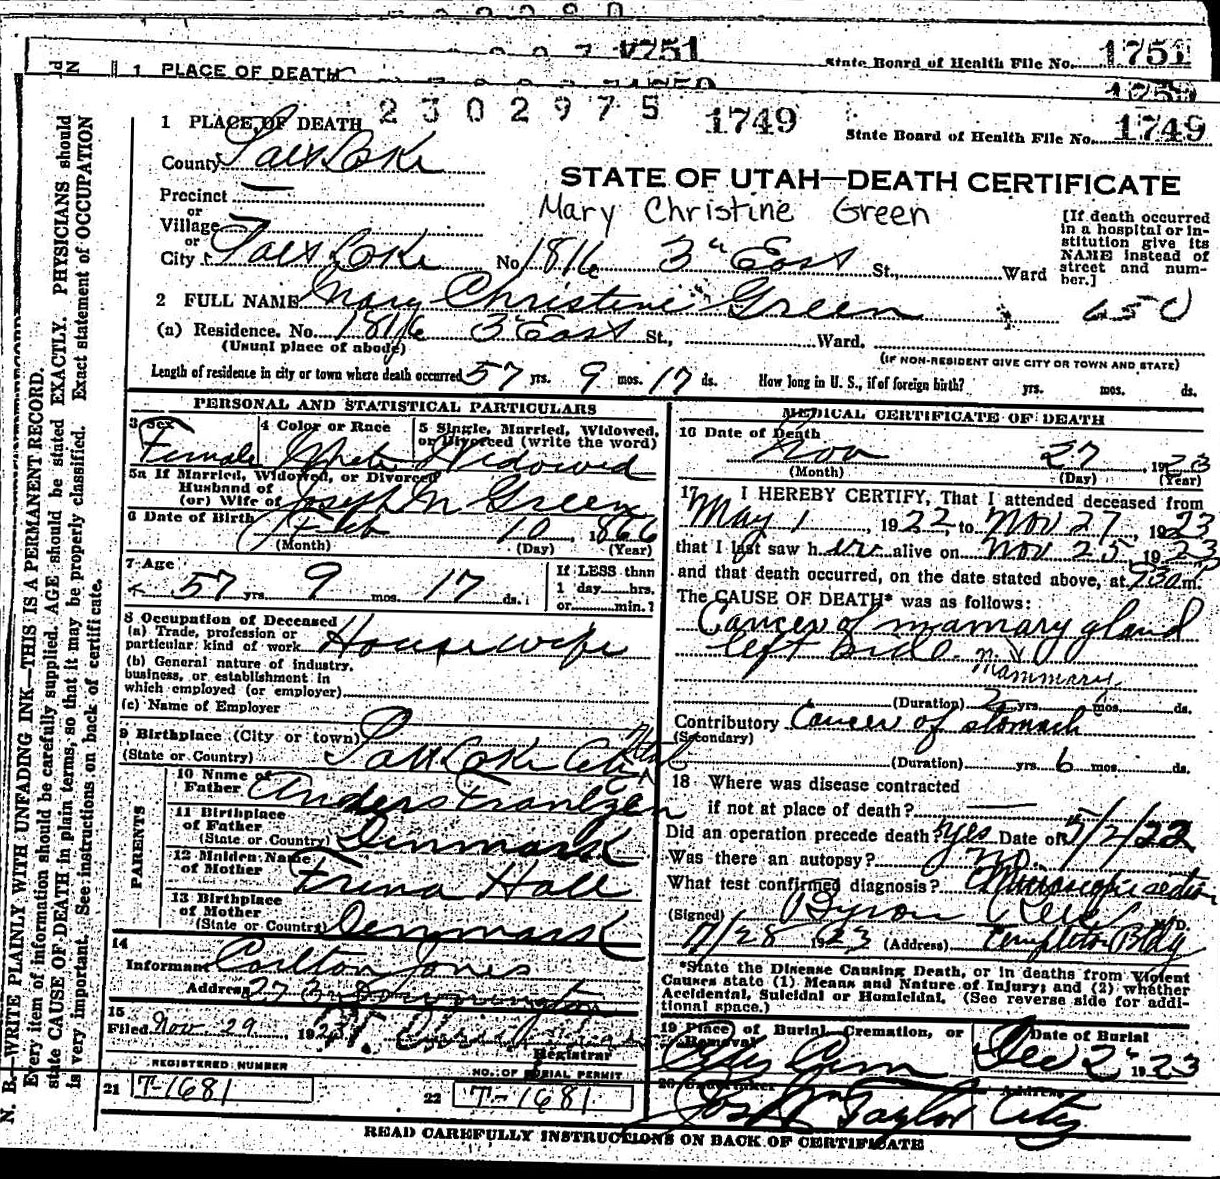 1751
State Board of Health File No. 1751
1 PLACE OF DEATH
2302975
1749
State Board of Health File No. 1749
1 PLACE OF DEATH
County Salt Lake
STATE OF UTAH—DEATH CERTIFICATE
Precinct —
Mary Christine Green
or
Village
or
City Salt Lake No. 1816 3" East St., Ward
[If death occurred in a hospital or institution give its NAME instead of street and number.]
2 FULL NAME Mary Christine Green
650
(a) Residence. No. 1816 3" East St., Ward.
(Usual place of abode)
(IF NON-RESIDENT GIVE CITY OR TOWN AND STATE)
Length of residence in city or town where death occurred 57 yrs. 9 mos. 17 ds. How long in U. S., if of foreign birth? yrs. mos. ds.
PERSONAL AND STATISTICAL PARTICULARS
3 Sex
Female
4 Color or Race
White
5 Single, Married, Widowed, or Divorced (write the word)
Widowed
5a If Married, Widowed, or Divorced
Husband of
(or) Wife of Joseph M Green
6 Date of Birth Feb 10, 1866
(Month) (Day) (Year)
7 Age
57 yrs. 9 mos. 17 ds.
If LESS than
1 day......hrs.
or......min.?
8 Occupation of Deceased
(a) Trade, profession or
particular kind of work Housewife
(b) General nature of industry,
business, or establishment in
which employed (or employer)
(c) Name of Employer
9 Birthplace (City or town) Salt Lake City Utah
(State or Country)
PARENTS
10 Name of
Father Anders Frantzen
11 Birthplace
of Father
(State or Country) Denmark
12 Maiden Name
of Mother Trina Hall
13 Birthplace
of Mother
(State or Country) Denmark
14
Informant Carlton Jones
Address
15
Filed Nov. 29, 1923
Registrar
REGISTERED NUMBER
21 T-1681
NO. OF BURIAL PERMIT
22 T-1681
MEDICAL CERTIFICATE OF DEATH
16 Date of Death
Nov 27, 1923
(Month) (Day) (Year)
17 I HEREBY CERTIFY, That I attended deceased from
May 1, 1922, to Nov 27, 1923
that I last saw her alive on Nov. 25, 1923
and that death occurred, on the date stated above, at 930 P m.
The CAUSE OF DEATH* was as follows:
Cancer of mamary gland
left side.
Mammary
(Duration) 2 yrs. 6 mos. ds.
Contributory Cancer of stomach
(Secondary)
(Duration) yrs. 6 mos. ds.
18 Where was disease contracted
if not at place of death? —
Did an operation precede death? yes Date of 5/2/22
Was there an autopsy? no.
What test confirmed diagnosis? Microscopic section
(Signed) Byron M.D.
11/28 1923 (Address) Templeton Bldg
*State the Disease Causing Death, or in deaths from Violent
Causes state (1) Means and Nature of Injury; and (2) whether
Accidental, Suicidal or Homicidal. (See reverse side for addi-
tional space.)
19 Place of Burial, Cremation, or
Removal
City Cem
Date of Burial
Dec 2" 1923
20 Undertaker
Jos Wm Taylor
Address
City
READ CAREFULLY INSTRUCTIONS ON BACK OF CERTIFICATE
N. B.—WRITE PLAINLY WITH UNFADING INK—THIS IS A PERMANENT RECORD.
Every item of information should be carefully supplied. AGE should be stated EXACTLY. PHYSICIANS should
state CAUSE OF DEATH in plain terms, so that it may be properly classified. Exact statement of OCCUPATION
is very important. See instructions on back of certificate.